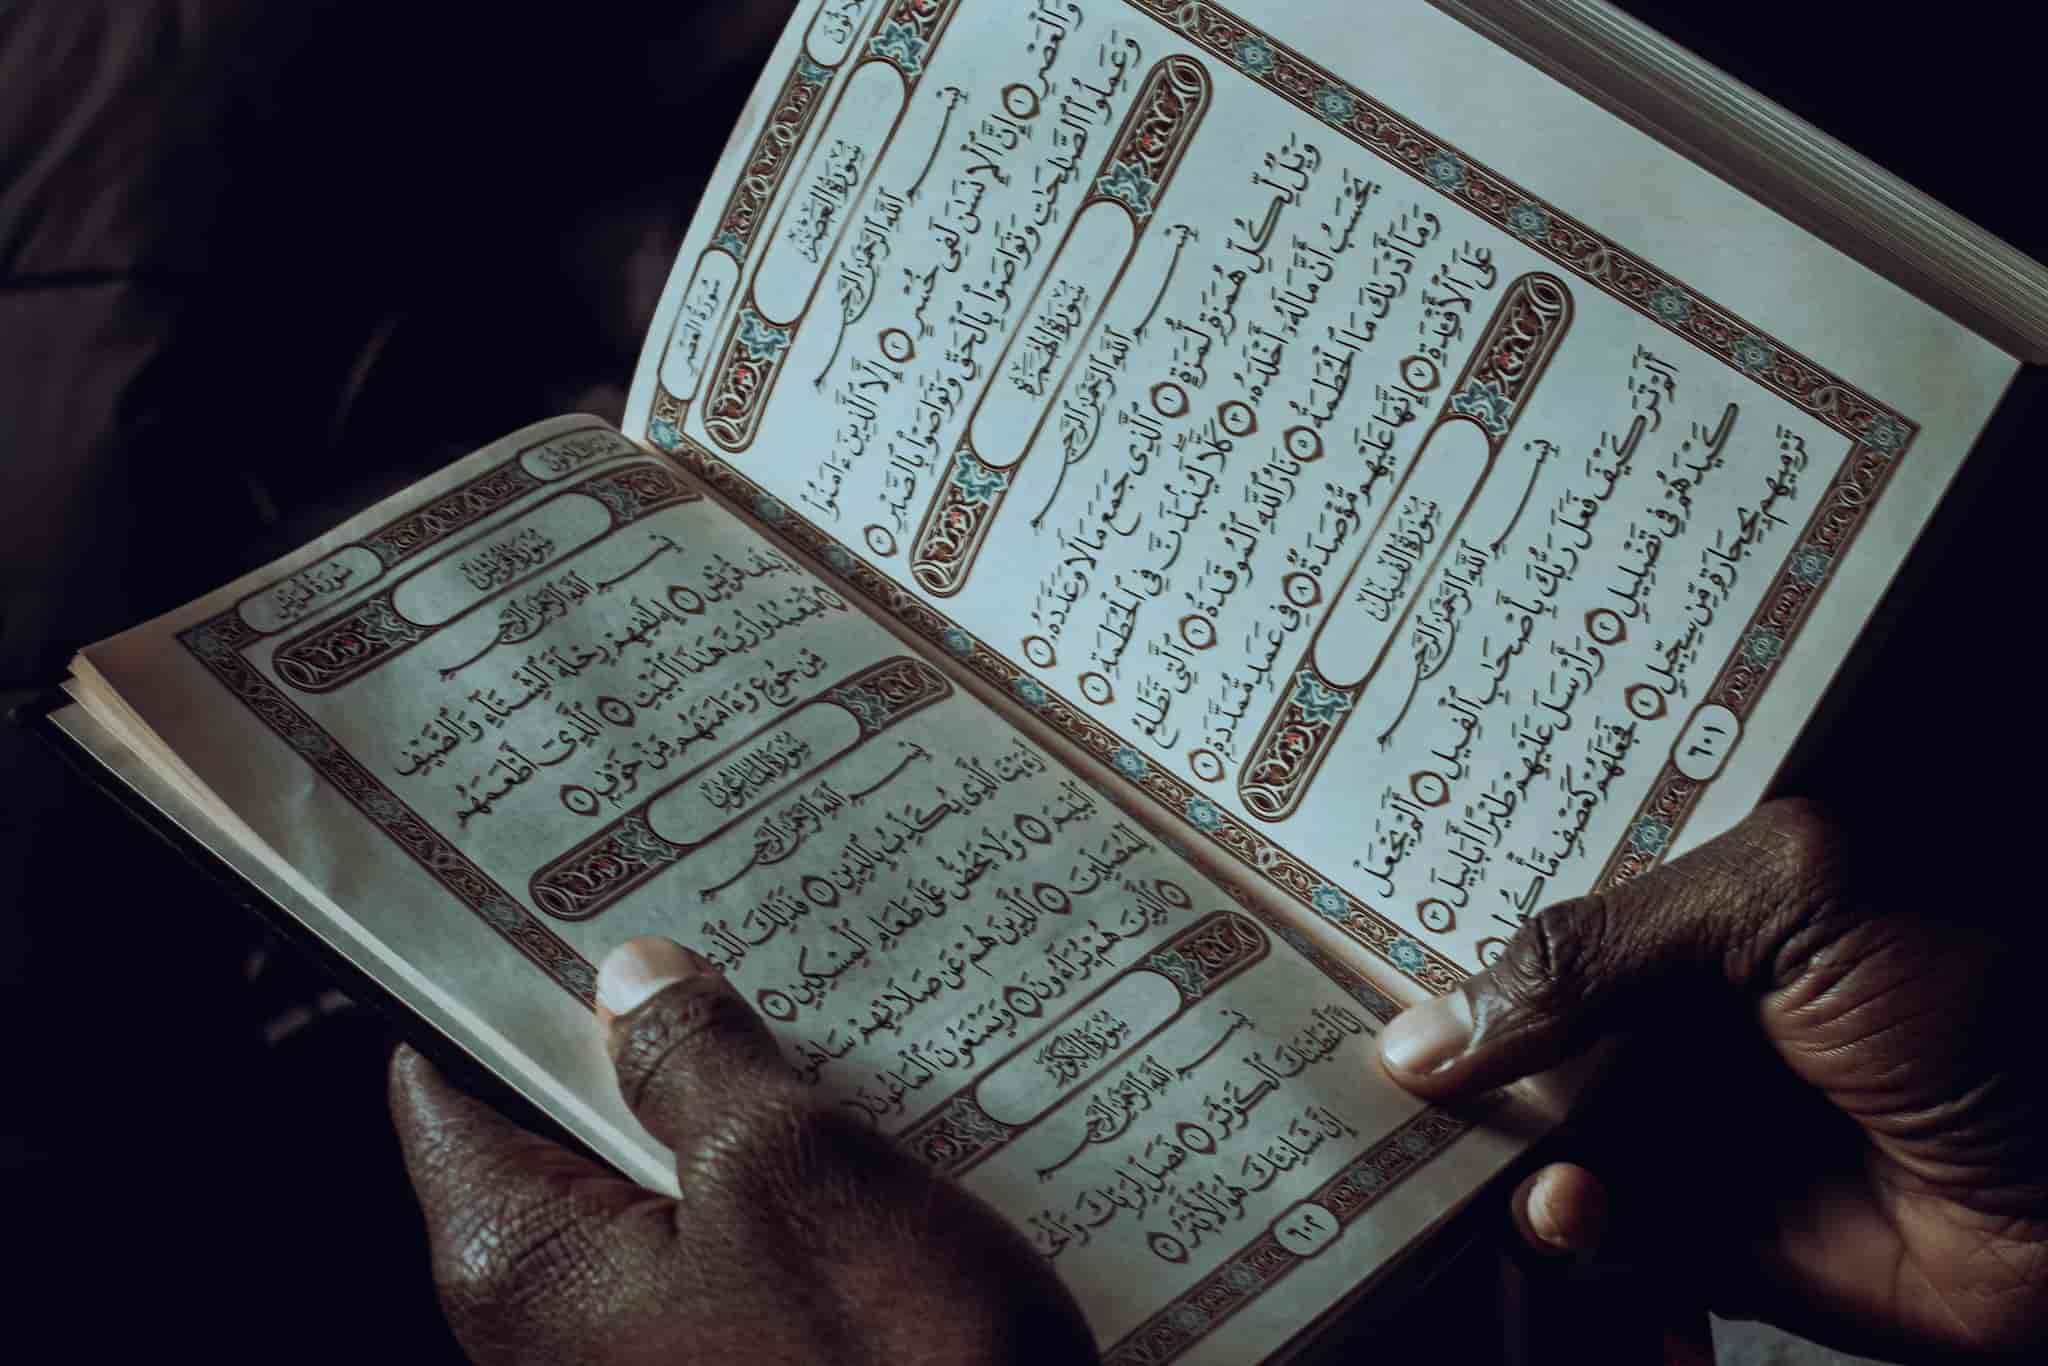 سُورَةُ العَصْرِ
سُورَةُ العَصْرِ
بِسْمِ ٱللَّهِ ٱلرَّحْمَٰنِ ٱلرَّحِيمِ
وَٱلْعَصْرِ ١ إِنَّ ٱلْإِنسَٰنَ لَفِى خُسْرٍ ٢ إِلَّا ٱلَّذِينَ ءَامَنُوا۟
وَعَمِلُوا۟ ٱلصَّٰلِحَٰتِ وَتَوَاصَوْا۟ بِٱلْحَقِّ وَتَوَاصَوْا۟ بِٱلصَّبْرِ ٣
سُورَةُ الهُمَزَةِ
بِسْمِ ٱللَّهِ ٱلرَّحْمَٰنِ ٱلرَّحِيمِ
وَيْلٌ لِّكُلِّ هُمَزَةٍ لُّمَزَةٍ ١ ٱلَّذِى جَمَعَ مَالًا وَعَدَّدَهُۥ ٢
يَحْسَبُ أَنَّ مَالَهُۥٓ أَخْلَدَهُۥ ٣ كَلَّا لَيُنۢبَذَنَّ فِى ٱلْحُطَمَةِ ٤
وَمَآ أَدْرَىٰكَ مَا ٱلْحُطَمَةُ ٥ نَارُ ٱللَّهِ ٱلْمُوقَدَةُ ٦ ٱلَّتِى تَطَّلِعُ
عَلَى ٱلْأَفْـِٔدَةِ ٧ إِنَّهَا عَلَيْهِم مُّؤْصَدَةٌ ٨ فِى عَمَدٍ مُّمَدَّدَةٍۭ ٩
سُورَةُ الفِيلِ
بِسْمِ ٱللَّهِ ٱلرَّحْمَٰنِ ٱلرَّحِيمِ
أَلَمْ تَرَ كَيْفَ فَعَلَ رَبُّكَ بِأَصْحَٰبِ ٱلْفِيلِ ١ أَلَمْ يَجْعَلْ
كَيْدَهُمْ فِى تَضْلِيلٍ ٢ وَأَرْسَلَ عَلَيْهِمْ طَيْرًا أَبَابِيلَ ٣
تَرْمِيهِم بِحِجَارَةٍ مِّن سِجِّيلٍ ٤ فَجَعَلَهُمْ كَعَصْفٍ مَّأْكُولٍۭ
٦٠١
سُورَةُ قُرَيْشٍ
سُورَةُ قُرَيْشٍ
بِسْمِ ٱللَّهِ ٱلرَّحْمَٰنِ ٱلرَّحِيمِ
قُرَيْشٍ ١ إِۦلَٰفِهِمْ رِحْلَةَ ٱلشِّتَآءِ وَٱلصَّيْفِ
٢ فَلْيَعْبُدُوا۟ رَبَّ هَٰذَا ٱلْبَيْتِ ٣ ٱلَّذِىٓ أَطْعَمَهُم
مِّن جُوعٍ وَءَامَنَهُم مِّنْ خَوْفٍۭ ٤
سُورَةُ المَاعُونِ
بِسْمِ ٱللَّهِ ٱلرَّحْمَٰنِ ٱلرَّحِيمِ
ٱلَّذِى يُكَذِّبُ بِٱلدِّينِ ١ فَذَٰلِكَ ٱلَّذِى
ٱلْيَتِيمَ ٢ وَلَا يَحُضُّ عَلَىٰ طَعَامِ ٱلْمِسْكِينِ ٣
ٱلَّذِينَ هُمْ عَن صَلَاتِهِمْ سَاهُونَ
٥ ٱلَّذِينَ هُمْ يُرَآءُونَ ٦ وَيَمْنَعُونَ ٱلْمَاعُونَ
سُورَةُ الكَوْثَرِ
بِسْمِ ٱللَّهِ ٱلرَّحْمَٰنِ ٱلرَّحِيمِ
إِنَّآ أَعْطَيْنَٰكَ ٱلْكَوْثَرَ ١ فَصَلِّ لِرَبِّكَ
إِنَّ شَانِئَكَ هُوَ ٱلْأَبْتَرُ ٣
٦٠٢